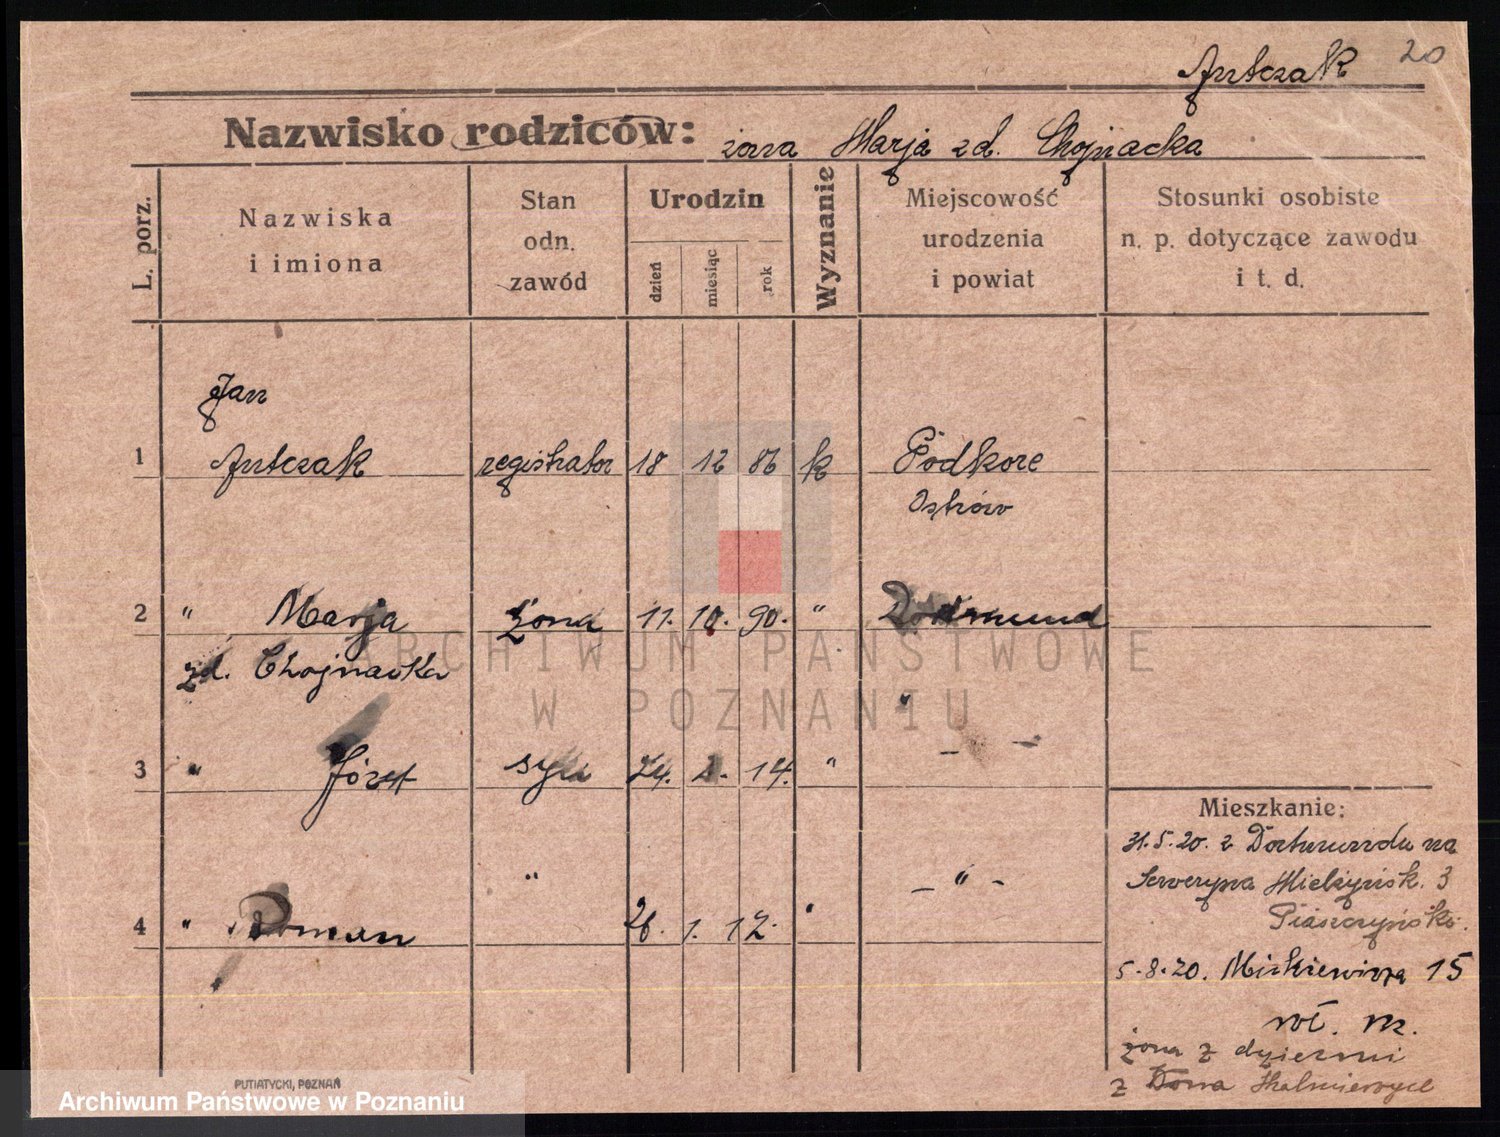 Antczak 20
Nazwisko rodziców: żona Marja zd. Chojnacka
L. porz.
Nazwiska
i imiona
Stan
odn.
zawód
Urodzin
dzień
miesiąc
rok
Wyznanie
Miejscowość
urodzenia
i powiat
Stosunki osobiste
n. p. dotyczące zawodu
i t. d.
Jan
1 Antczak registrator 18 12 86 k Podkore
Ostrów
2 " Marja żona 11. 10. 90. " Dortmund
zd. Chojnacka
"
3 " Józef syn 24. 2. 14. " - -
4 " Roman " 26. 1. 12. " - " -
Mieszkanie:
31.5.20. z Dortmundu na
Seweryna Mielżyńsk. 3
Piaszczyńsk.
5.8.20. Mickiewicza 15
żona z dziećmi
z
PUTIATYCKI, POZNAŃ
ARCHIWUM PAŃSTWOWE
W POZNANIU
Archiwum Państwowe w Poznaniu